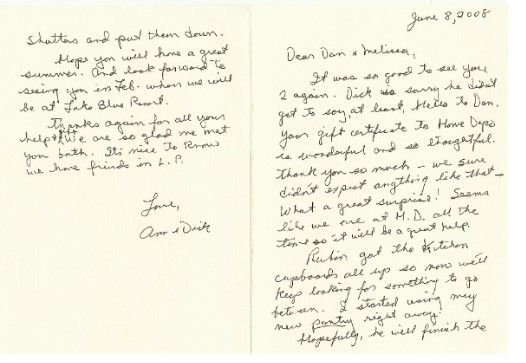 June 8, 2008
Dear Dan & Melissa,
It was so good to see you
2 again. Dick is sorry he didn't
get to say, at least, Hello to Dan.
Your gift certificate to Home Depo
is wonderful and so thoughtful.
Thank you so much – we sure
didn't expect anything like that –
What a great surprise! Seems
like we are at H.D. all the
time so it will be a great help.
Rubin got the kitchen
cupboards all up so now we'll
keep looking for something to go
between. I started using my
new pantry right away.
Hopefully, he will finish the
Shutters and put them down.
Hope you will have a great
summer. And look forward to
seeing you in Feb. when we will
be at Lake Blue Resort.
Thanks again for all your
help! We are so glad we met
you both. It's nice to know
we have frinds in L.P.
Love,
Ann & Dick